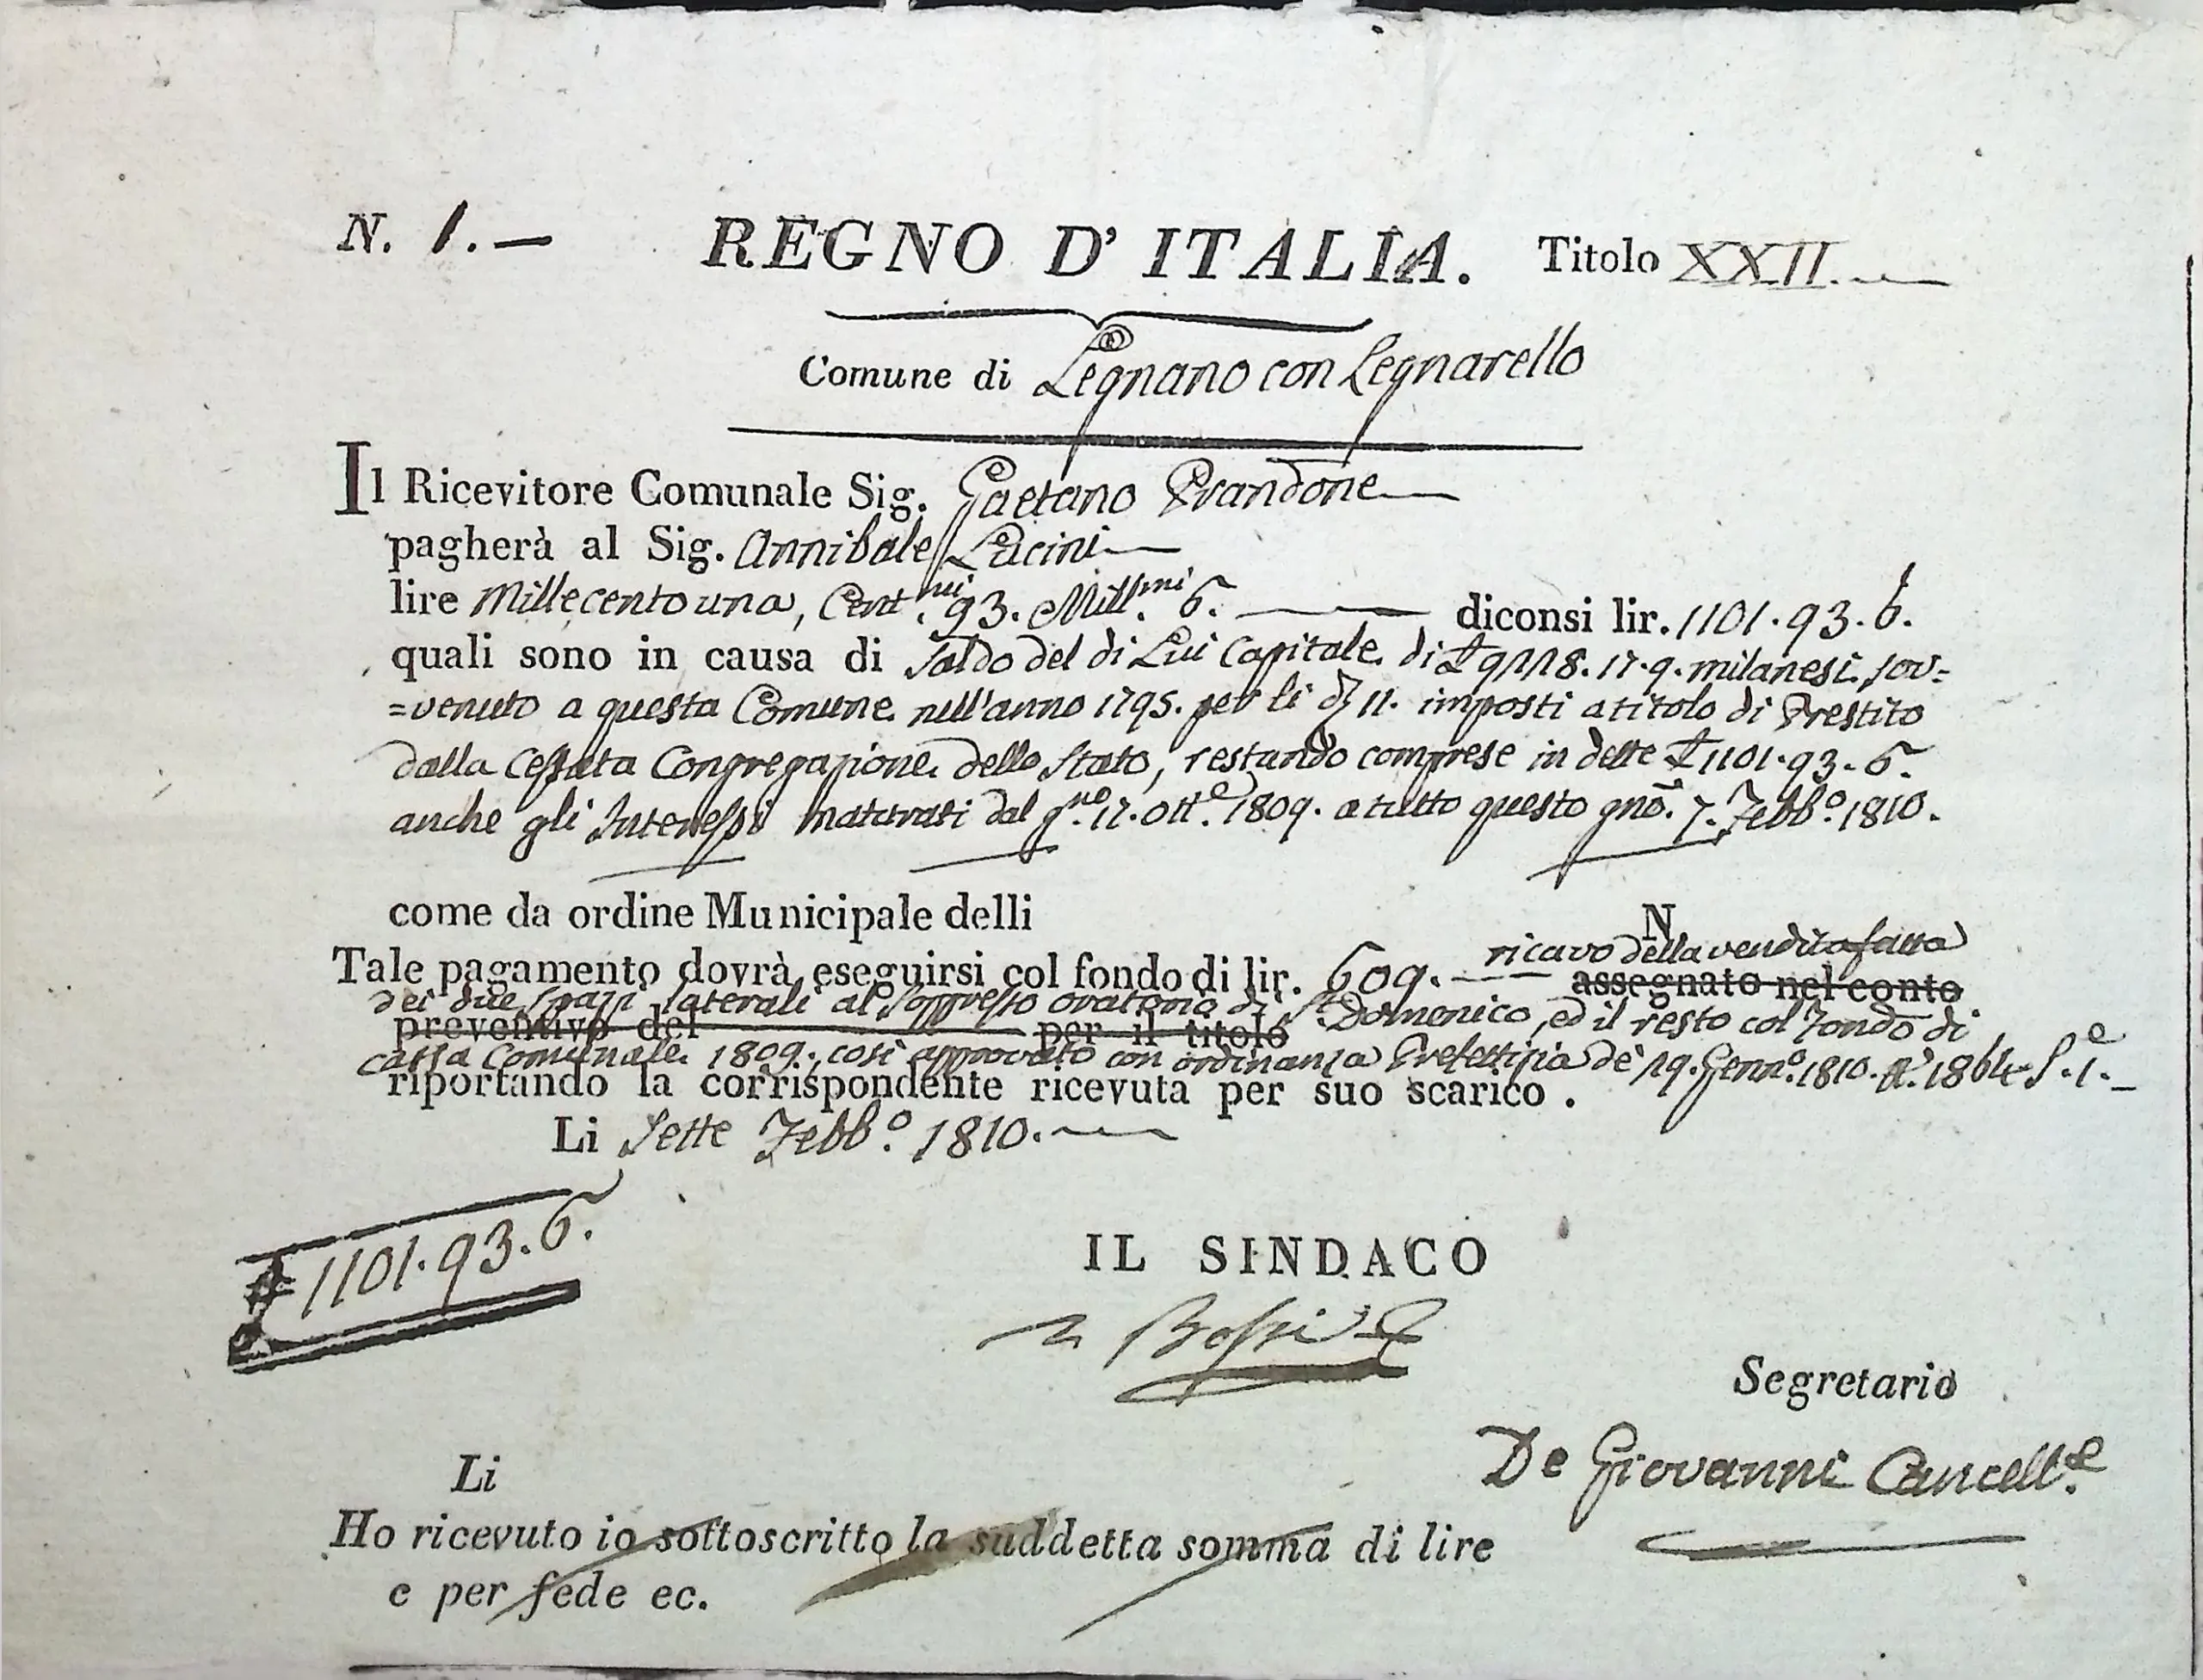 N. 1. — REGNO D' ITALIA. Titolo XXII.
Comune di Legnano con Legnarello
Il Ricevitore Comunale Sig. Gaetano Prandone
pagherà al Sig. Annibale Lucini
lire Millecento una, Cent.mi 93. Mill.mi 6. diconsi lir. 1101.93.6.
quali sono in causa di Saldo del di Lui Capitale di 17.9. milanesi sov=
=venuto a questa Comune nell'anno 1795. per li 11. imposti a titolo di Prestito
dalla Cessata Congregazione dello Stato, restando comprese in dette £ 1101.93.6.
anche gli Interessi maturati dal g.no 12. Ott.e 1809. a tutto questo gno. 7. Febb.o 1810.
come da ordine Municipale delli N
ricavo della vendita fatta
Tale pagamento dovrà eseguirsi col fondo di lir. 609. assegnato nel conto
dei due spazi laterali al soppresso oratorio di St Domenico, ed il resto col Fondo di
preventivo del per il titolo
cassa Comunale 1809., così approvato con ordinanza Prefettizia de' 19. Genn.o 1810. N.o 1864 S.e 1.
riportando la corrispondente ricevuta per suo scarico.
Li Sette Febb.o 1810.
£ 1101.93.6.
IL SINDACO
Bossi
Segretario
De Giovanni Cancell.e
Li
Ho ricevuto io sottoscritto la suddetta somma di lire
e per fede ec.